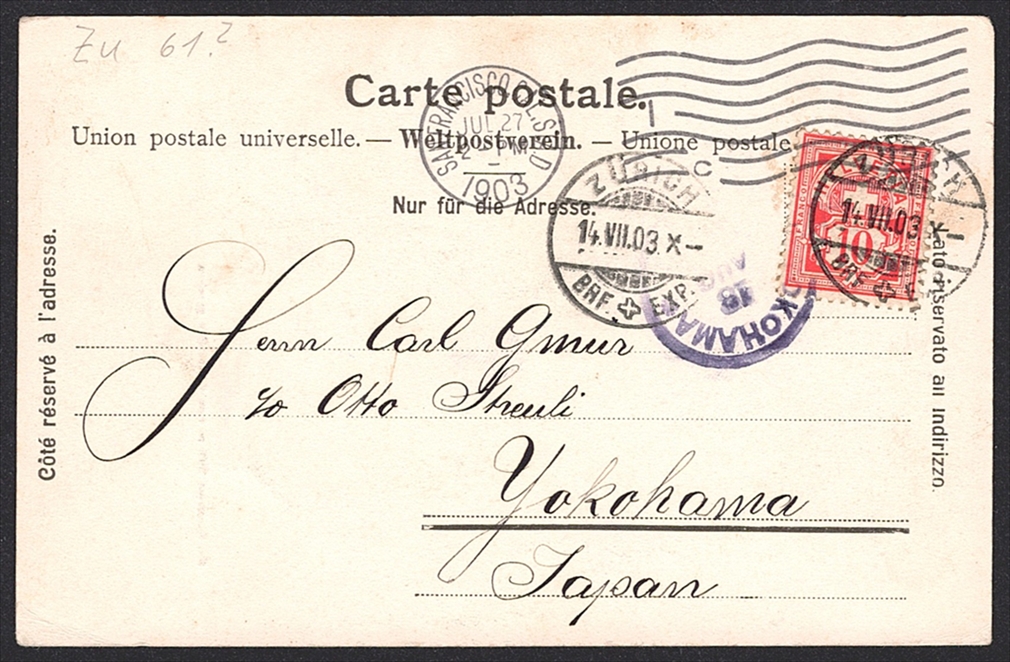 Zu 61?
Carte postale.
Union postale universelle. — Weltpostverein. — Unione postale
Nur für die Adresse.
SAN FRANCISCO
JUL 27
1903
C
ZÜRICH
14.VII.03 X–
BRF. EXP.
14.VII.03 X
BRF.
FRANCO
10
YOKOHAMA
18
AU
Côté réservé à l'adresse.
Lato riservato all indirizzo.
Herrn Carl Gmur
c/o Otto Streuli
Yokohama
Japan